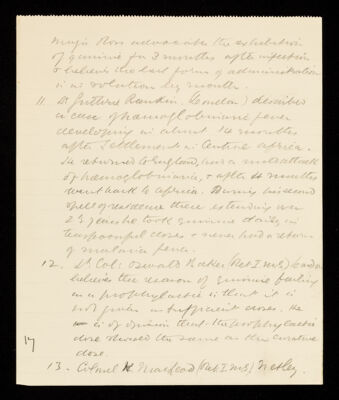 Major Ross advocates the exhibition
of quinine for 3 months after infection
& believes the best form of administration
is in solution by mouth.
11. Dr Guthrie Rankin (London) describes
a case of hæmoglobinuric fever
developing in about 14 months
after settlement in Central Africa.
He returned to England, had a
of hæmoglobinuria, & after 4 months
went back to Africa. During his second
spell of residence there extending over
2½ years he took quinine daily in
teaspoonful doses & never had a return
of malaria fever.
12. Lt Col: Oswald Baker (Ret I.M.S)
believes the reason of quinine failing
as a prophylactic is that it is
not given in sufficient doses. He
is of opinion that the prophylactic
dose should be same as the curative
dose.
17
13. Colonel Macleod (Ret. I.M.S) Netley.